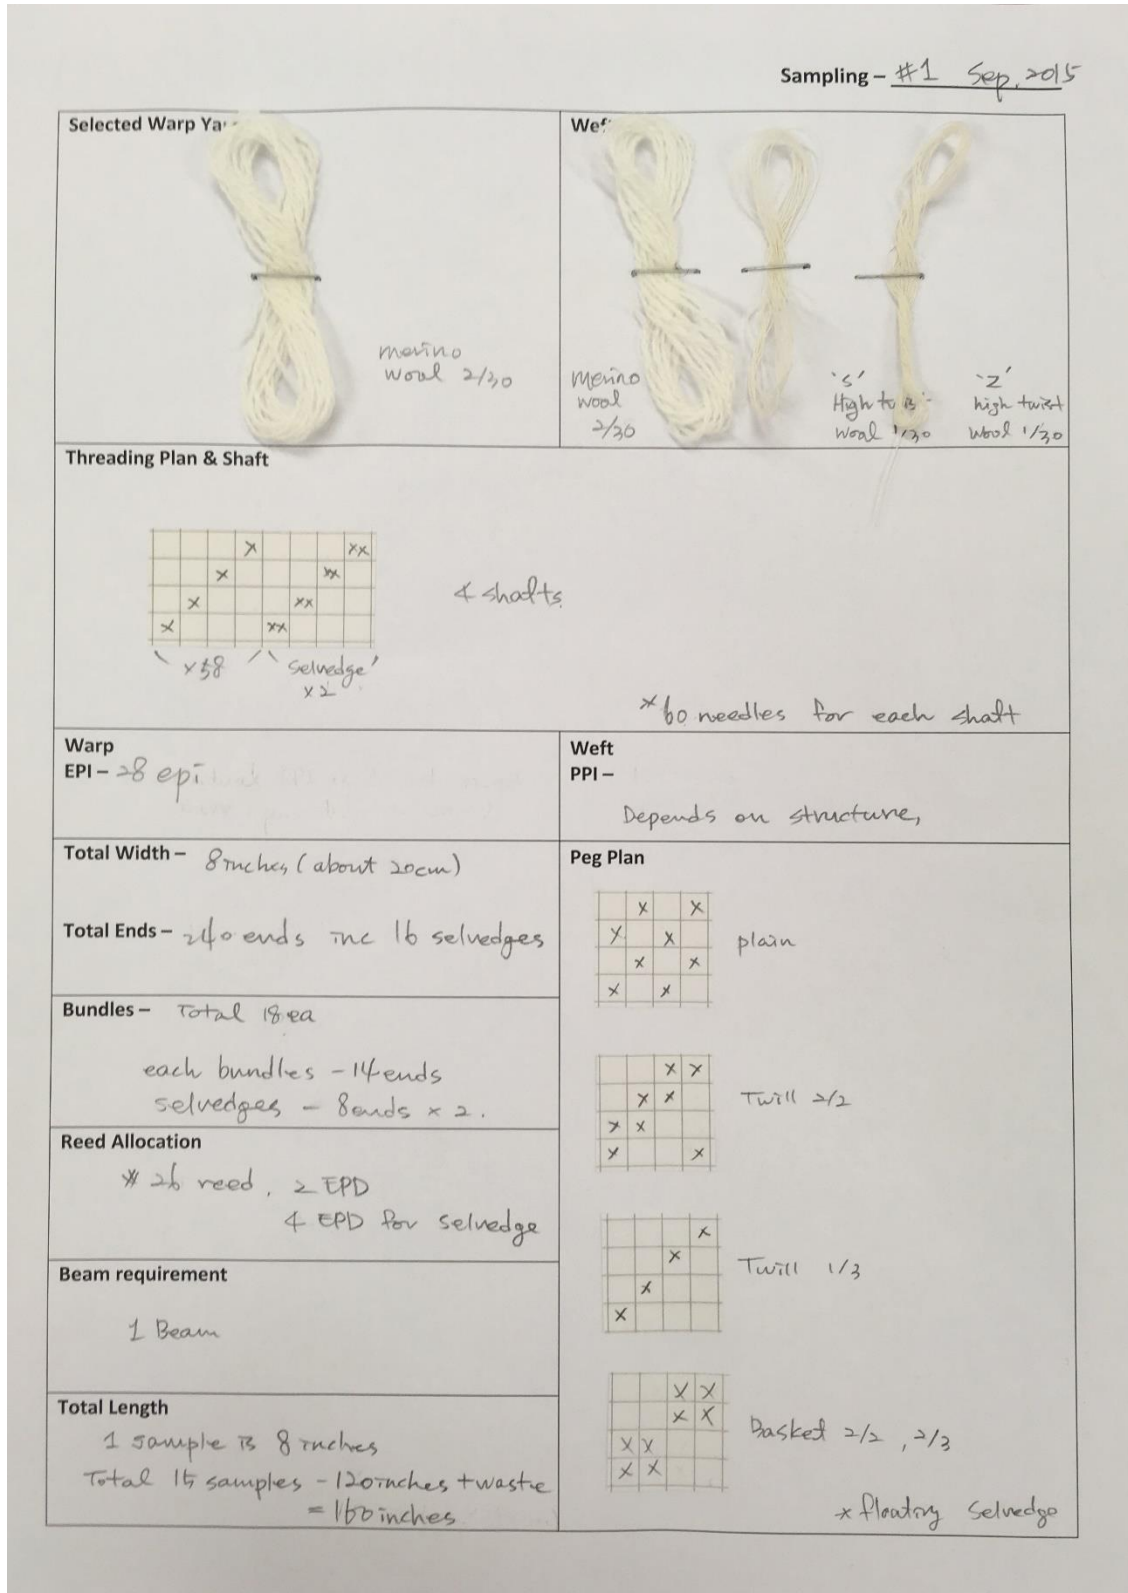 Sampling – #1 Sep. 2015
Selected Warp Ya
merino
wool 2/30
Wef
merino
wool
2/30
's'
High twis
wool 1/30
'Z'
high twist
wool 1/30
Threading Plan & Shaft
x
xx
x
xx
x
xx
x
xx
x58
selvedge
x2
4 shafts
*60 needles for each shaft
Warp
EPI – 28 epi
Weft
PPI –
Depends on structure,
Total Width – 8 inches (about 20cm)
Total Ends – 240 ends inc 16 selvedges
Bundles – Total 18 ea
each bundles – 14 ends
selvedges – 8 ends x 2.
Reed Allocation
# 26 reed, 2 EPD
4 EPD for selvedge
Beam requirement
1 Beam
Total Length
1 sample is 8 inches
Total 15 samples – 120 inches + waste
= 160 inches
Peg Plan
x x
x x
x x
x x
plain
x x
x x
x x
x x
Twill 2/2
x
x
x
x
Twill 1/3
x x
x x
x x
x x
Basket 2/2, 2/3
x floating selvedge